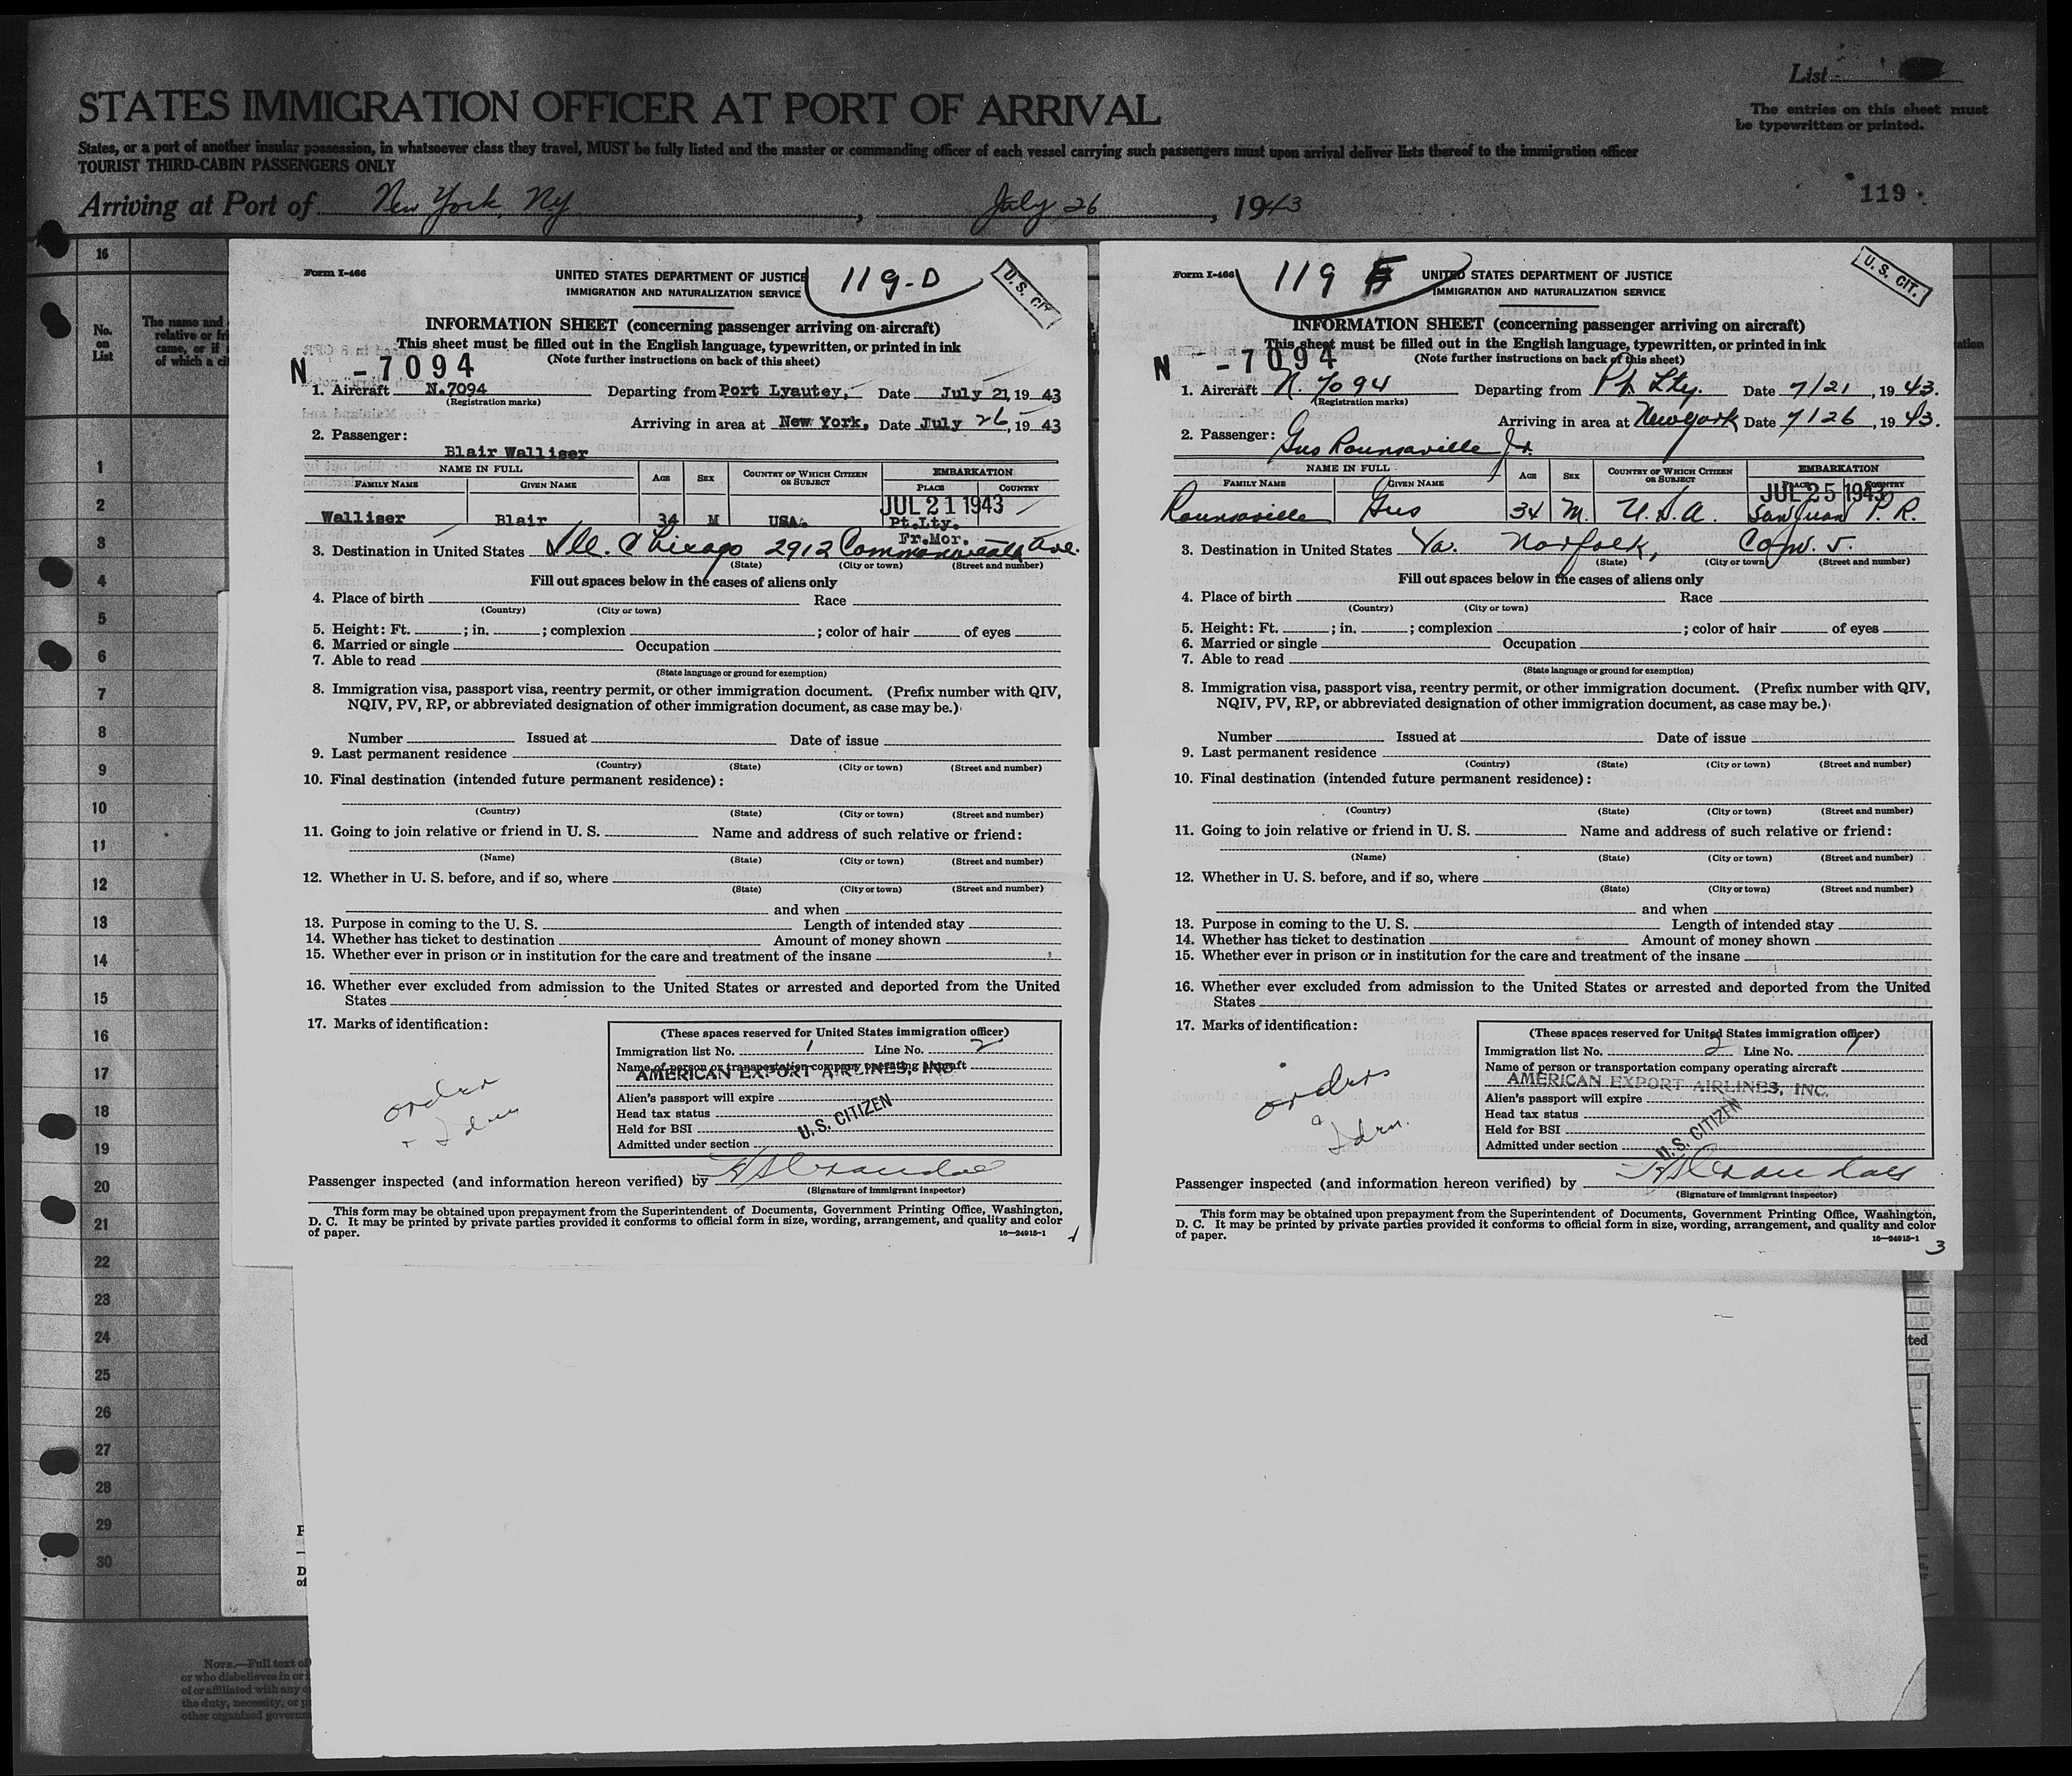 List
STATES IMMIGRATION OFFICER AT PORT OF ARRIVAL
The entries on this sheet must
be typewritten or printed.
States, or a port of another insular possession, in whatsoever class they travel, MUST be fully listed and the master or commanding officer of each vessel carrying such passengers must upon arrival deliver lists thereof to the immigration officer
TOURIST THIRD-CABIN PASSENGERS ONLY
Arriving at Port of New York, Ny, July 26, 1943
119
16
No.
on
List
The name and
relative or fri
came, or if
of which a cit
1
2
3
4
5
6
7
8
9
10
11
12
13
14
15
16
17
18
19
20
21
22
23
24
25
26
27
28
29
30
Form I-466
UNITED STATES DEPARTMENT OF JUSTICE
119-D
U. S. CIT.
IMMIGRATION AND NATURALIZATION SERVICE
INFORMATION SHEET (concerning passenger arriving on aircraft)
This sheet must be filled out in the English language, typewritten, or printed in ink
(Note further instructions on back of this sheet)
N - 7094
1. Aircraft N.7094 Departing from Port Lyautey, Date July 21 19 43
(Registration marks)
Arriving in area at New York, Date July 26, 19 43
2. Passenger:
Blair Walliser
NAME IN FULL AGE SEX COUNTRY OF WHICH CITIZEN OR SUBJECT EMBARKATION
FAMILY NAME GIVEN NAME PLACE COUNTRY
JUL 21 1943
Walliser Blair 34 M USA. Pt.Lty.
Fr.Mor.
3. Destination in United States Ill. Chicago 2912 Commonwealth Ave.
(State) (City or town) (Street and number)
Fill out spaces below in the cases of aliens only
4. Place of birth Race
(Country) (City or town)
5. Height: Ft. ; in. ; complexion ; color of hair of eyes
6. Married or single Occupation
7. Able to read
(State language or ground for exemption)
8. Immigration visa, passport visa, reentry permit, or other immigration document. (Prefix number with QIV,
NQIV, PV, RP, or abbreviated designation of other immigration document, as case may be.)
Number Issued at Date of issue
9. Last permanent residence
(Country) (State) (City or town) (Street and number)
10. Final destination (intended future permanent residence):
(Country) (State) (City or town) (Street and number)
11. Going to join relative or friend in U. S. Name and address of such relative or friend:
(Name) (State) (City or town) (Street and number)
12. Whether in U. S. before, and if so, where
(State) (City or town) (Street and number)
and when
13. Purpose in coming to the U. S. Length of intended stay
14. Whether has ticket to destination Amount of money shown
15. Whether ever in prison or in institution for the care and treatment of the insane
16. Whether ever excluded from admission to the United States or arrested and deported from the United
States
17. Marks of identification:
order
(These spaces reserved for United States immigration officer)
Immigration list No. 1 Line No. 2
Name of person or transportation company operating aircraft
AMERICAN EXPORT AIRLINES, INC.
Alien's passport will expire
Head tax status
Held for BSI
U. S. CITIZEN
Admitted under section
Passenger inspected (and information hereon verified) by
(Signature of immigrant inspector)
This form may be obtained upon prepayment from the Superintendent of Documents, Government Printing Office, Washington,
D. C. It may be printed by private parties provided it conforms to official form in size, wording, arrangement, and quality and color
of paper.
16—24915-1
Form I-466
119 F
UNITED STATES DEPARTMENT OF JUSTICE
U. S. CIT.
IMMIGRATION AND NATURALIZATION SERVICE
INFORMATION SHEET (concerning passenger arriving on aircraft)
This sheet must be filled out in the English language, typewritten, or printed in ink
(Note further instructions on back of this sheet)
N - 7094
1. Aircraft N. 7094 Departing from Pt. Lty. Date 7/21, 19 43.
(Registration marks)
Arriving in area at New york Date 7/26, 19 43.
2. Passenger: Gus Rounsaville Jr.
NAME IN FULL AGE SEX COUNTRY OF WHICH CITIZEN OR SUBJECT EMBARKATION
FAMILY NAME GIVEN NAME PLACE COUNTRY
JUL 25 1943
Rounsaville Gus 34 M. U.S.A. San Juan P. R.
3. Destination in United States Va. Norfolk,
(State) (City or town) (Street and number)
Fill out spaces below in the cases of aliens only
4. Place of birth Race
(Country) (City or town)
5. Height: Ft. ; in. ; complexion ; color of hair of eyes
6. Married or single Occupation
7. Able to read
(State language or ground for exemption)
8. Immigration visa, passport visa, reentry permit, or other immigration document. (Prefix number with QIV,
NQIV, PV, RP, or abbreviated designation of other immigration document, as case may be.)
Number Issued at Date of issue
9. Last permanent residence
(Country) (State) (City or town) (Street and number)
10. Final destination (intended future permanent residence):
(Country) (State) (City or town) (Street and number)
11. Going to join relative or friend in U. S. Name and address of such relative or friend:
(Name) (State) (City or town) (Street and number)
12. Whether in U. S. before, and if so, where
(State) (City or town) (Street and number)
and when
13. Purpose in coming to the U. S. Length of intended stay
14. Whether has ticket to destination Amount of money shown
15. Whether ever in prison or in institution for the care and treatment of the insane
16. Whether ever excluded from admission to the United States or arrested and deported from the United
States
17. Marks of identification:
orders
(These spaces reserved for United States immigration officer)
Immigration list No. 2 Line No. 1
Name of person or transportation company operating aircraft
AMERICAN EXPORT AIRLINES, INC.
Alien's passport will expire
Head tax status
Held for BSI
U. S. CITIZEN
Admitted under section
Passenger inspected (and information hereon verified) by
(Signature of immigrant inspector)
This form may be obtained upon prepayment from the Superintendent of Documents, Government Printing Office, Washington,
D. C. It may be printed by private parties provided it conforms to official form in size, wording, arrangement, and quality and color
of paper.
16—24915-1
3
NOTE.—Full text of
or who disbelieves in or
of or affiliated with any o
the duty, necessity, or p
other organized governm